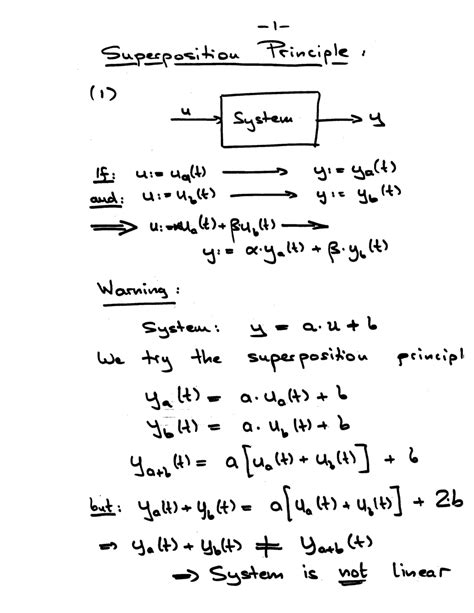 -1-
Superposition Principle:
(1)
u System y
If: u:= u_a(t) ⟶ y:= y_a(t)
and: u:= u_b(t) ⟶ y:= y_b(t)
⟹ u:= αu_a(t) + βu_b(t) ⟶
y:= α·y_a(t) + β·y_b(t)
Warning:
System: y = a·u + b
We try the superposition principl
y_a(t) = a·u_a(t) + b
y_b(t) = a·u_b(t) + b
y_a+b(t) = a[u_a(t) + u_b(t)] + b
but: y_a(t) + y_b(t) = a[u_a(t) + u_b(t)] + 2b
⇒ y_a(t) + y_b(t) ≠ y_a+b(t)
⇒ System is not linear